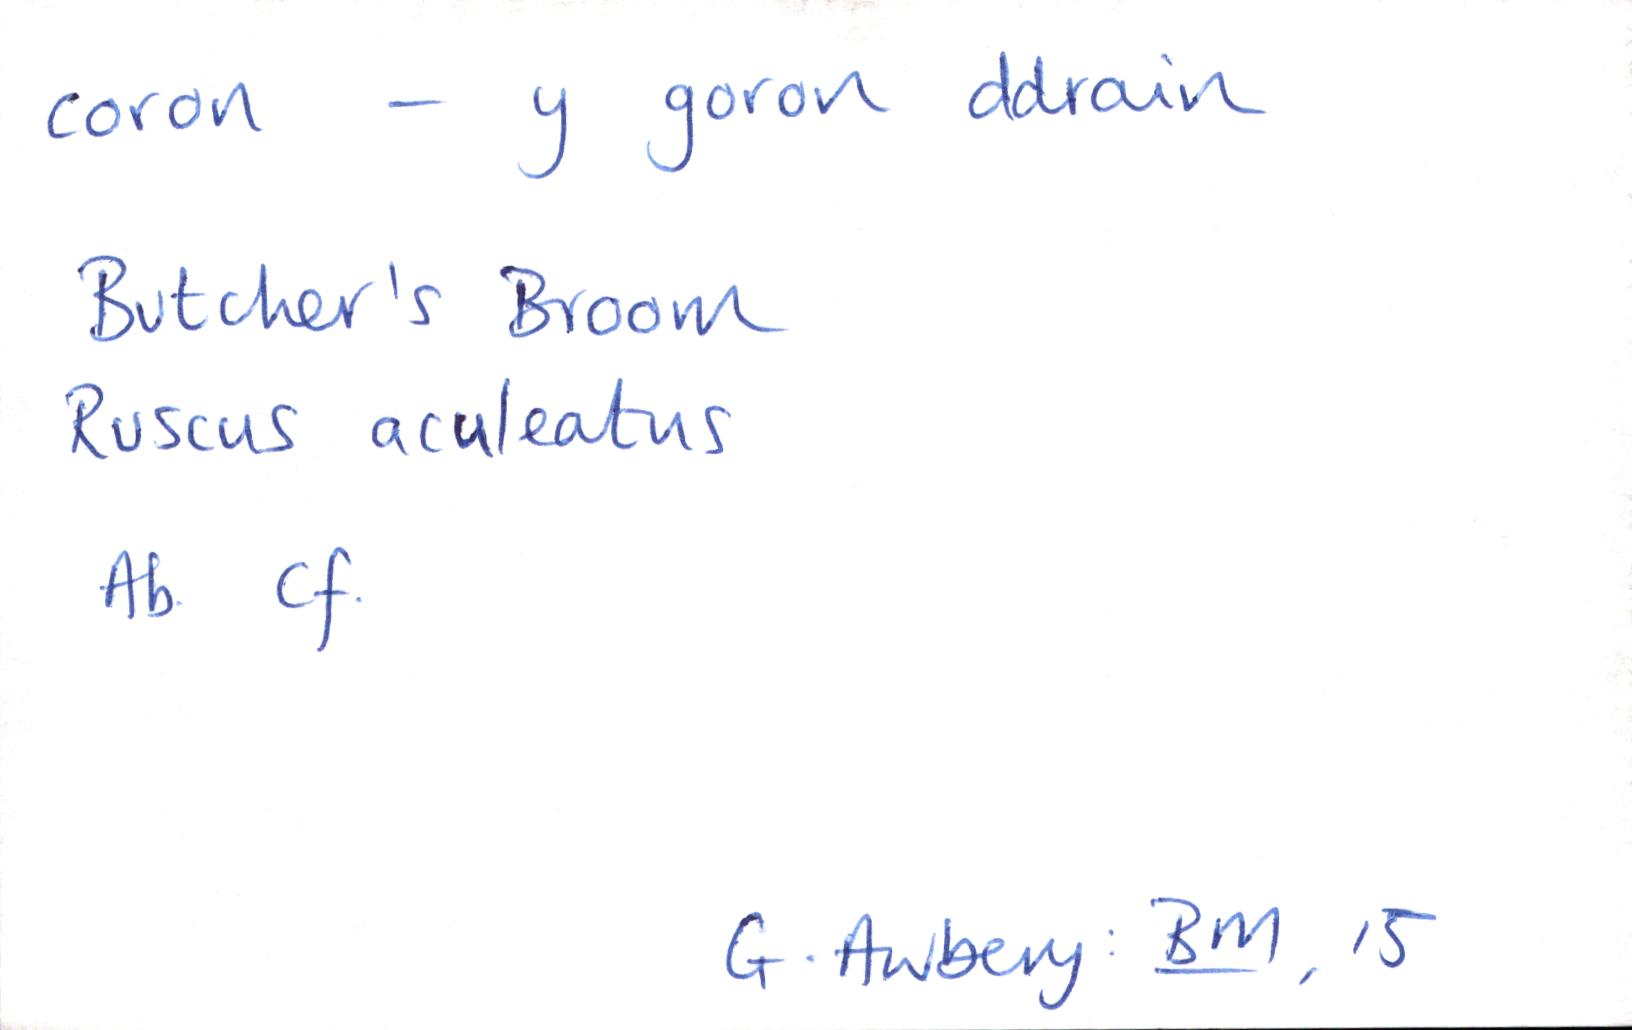 coron - y goron ddrain
Butcher's Broom
Ruscus aculeatus
Ab. Cf.
G. Awbery: BM, 15